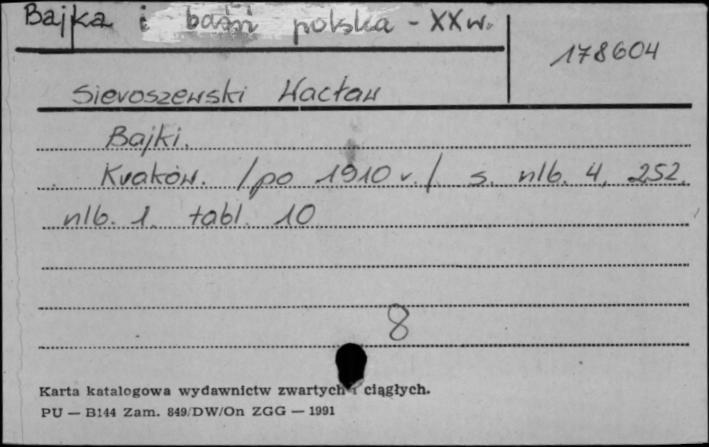 Bajka i baśń polska - XX w.
178604
Sieroszewski Wacław
Bajki.
Kraków. /po 1910 r./ s. nlb. 4, 252,
nlb. 1. tabl. 10
8
Karta katalogowa wydawnictw zwartych i ciągłych.
PU — B144 Zam. 849/DW/On ZGG — 1991